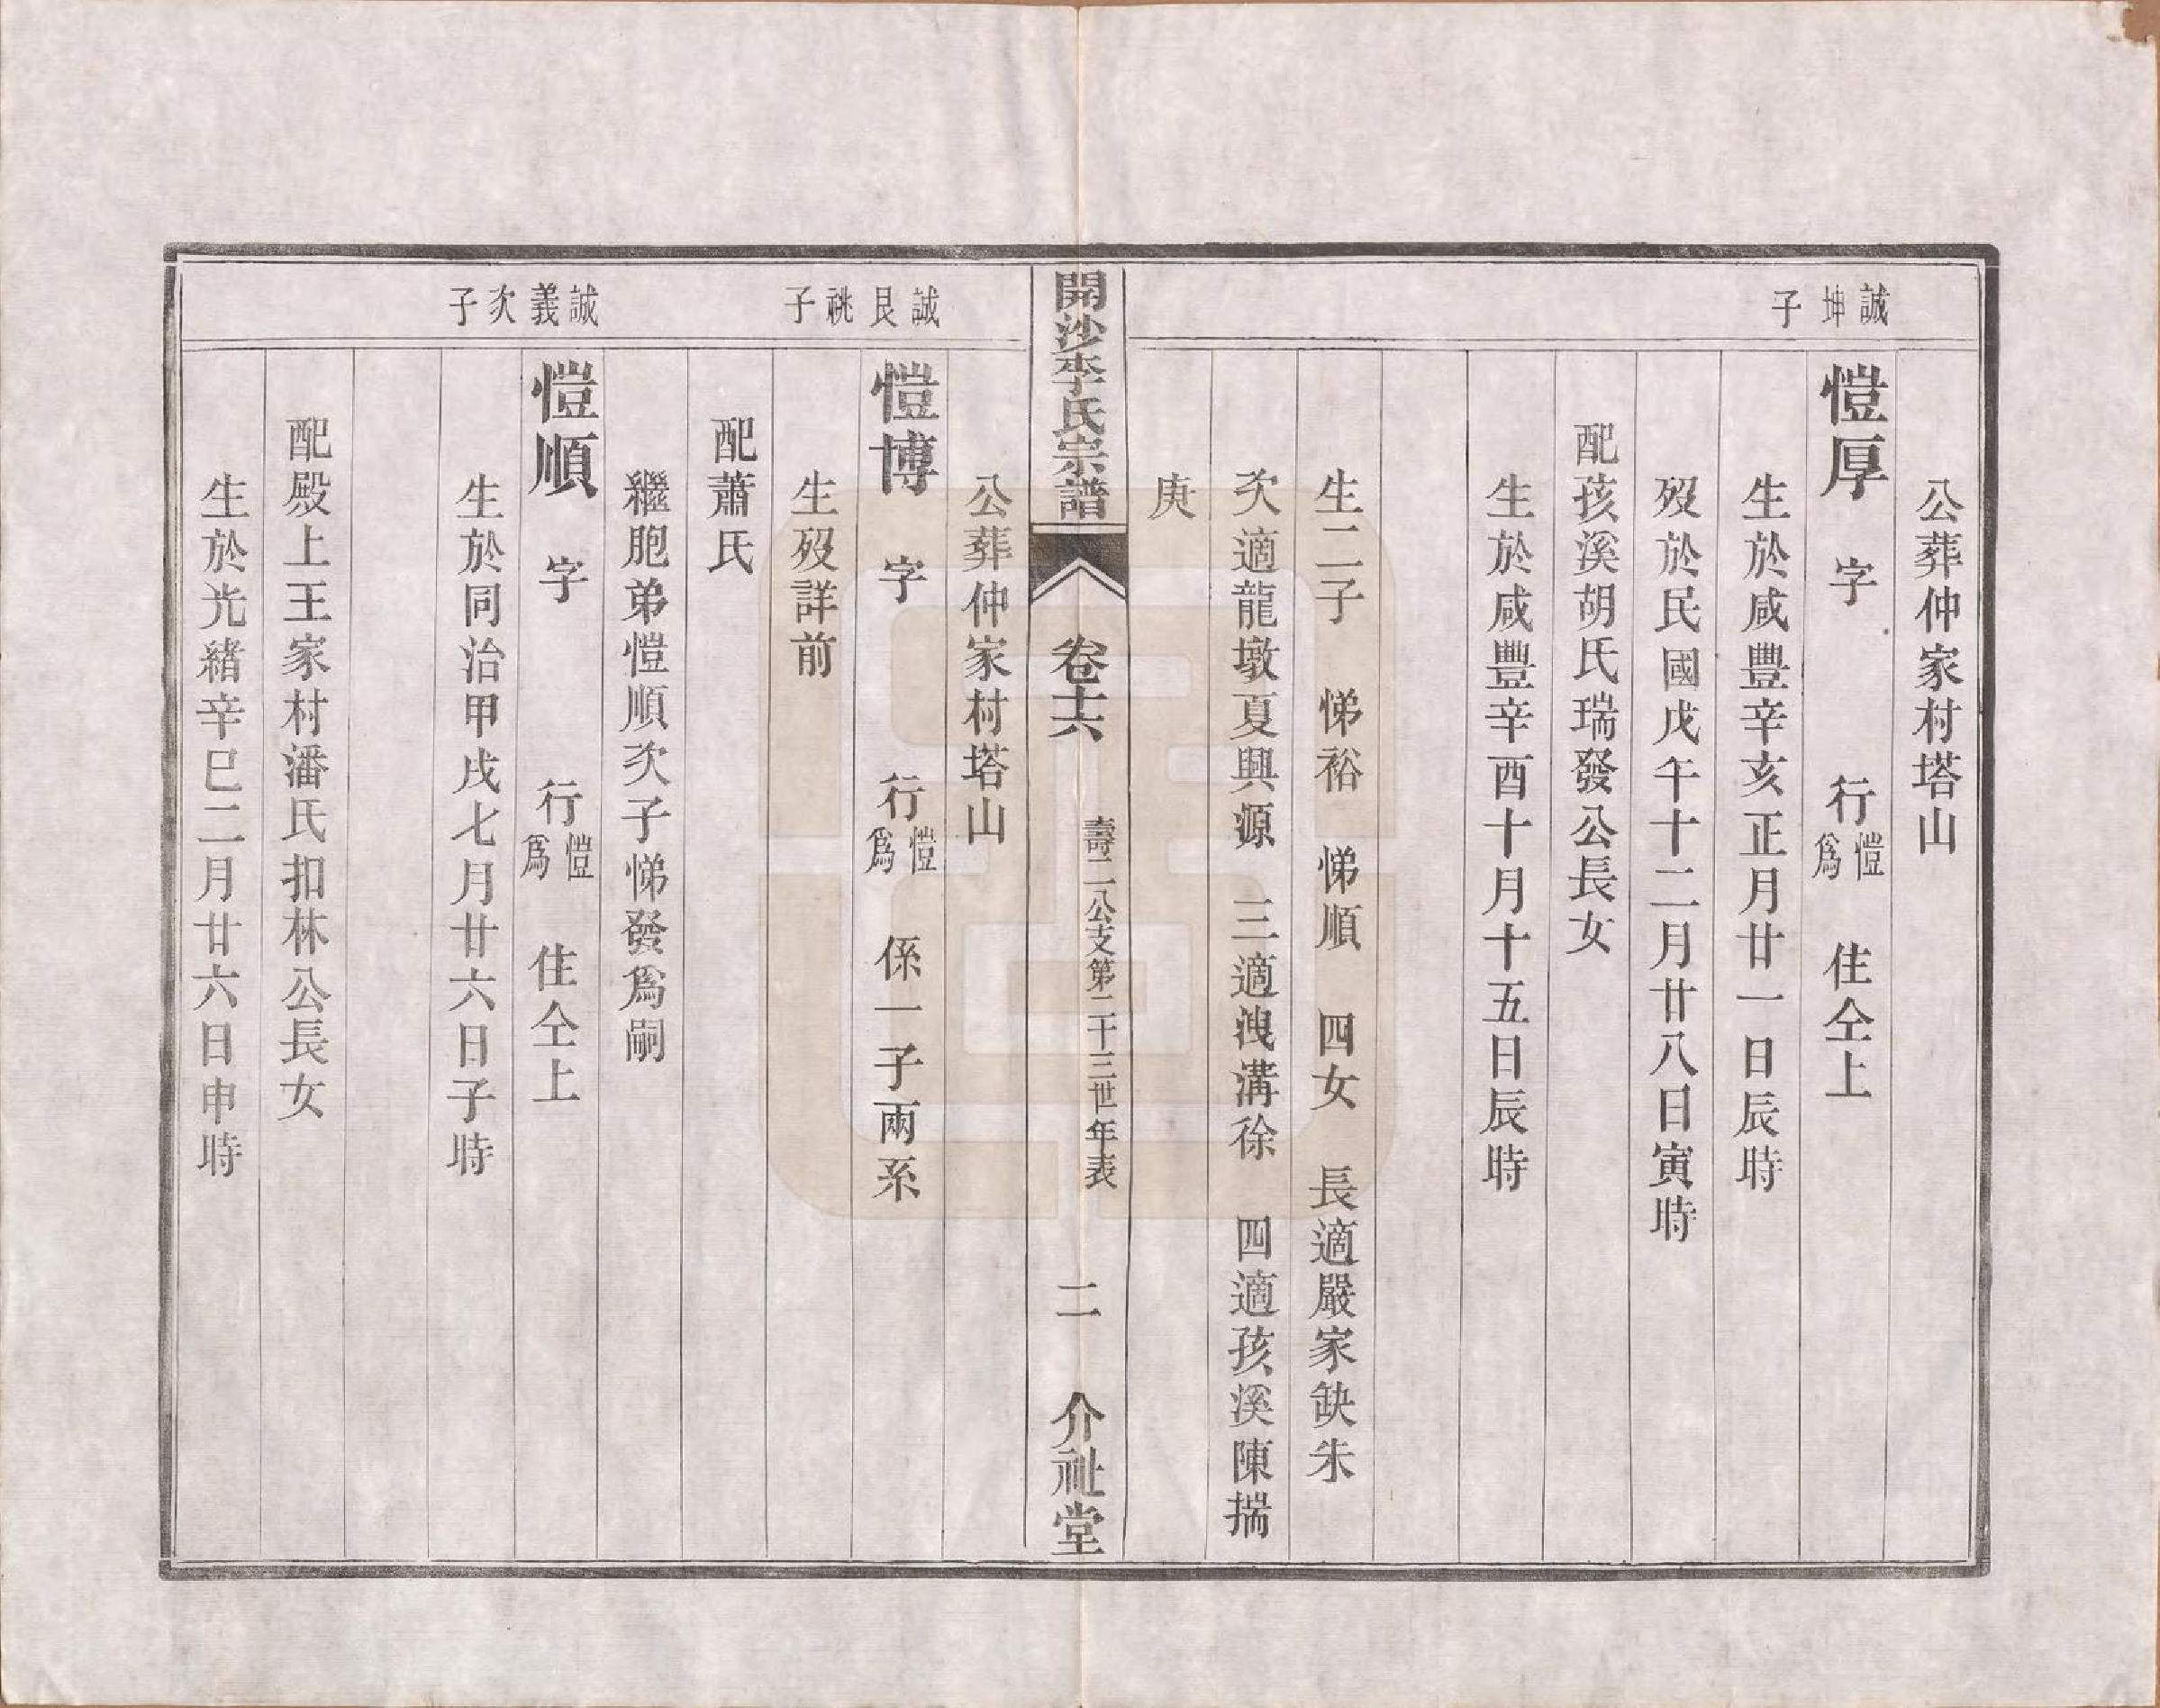 公葬仲家村塔山
誠坤子
愷厚　字　行愷爲　住仝上
生於咸豐辛亥正月廿一日辰時
歿於民國戊午十二月廿八日寅時
配孩溪胡氏瑞發公長女
生於咸豐辛酉十月十五日辰時
生二子　悌裕　悌順　四女　長適嚴家缺朱
次適龍墩夏興源　三適洩溝徐　四適孩溪陳揣
庚
開沙李氏宗譜　卷十六　壽二八公支第二十三世年表　二　介祉堂
公葬仲家村塔山
誠艮祧子
愷博　字　行愷爲　係一子兩系
生歿詳前
配蕭氏
繼胞弟愷順次子悌發爲嗣
誠義次子
愷順　字　行愷爲　住仝上
生於同治甲戌七月廿六日子時
配殿上王家村潘氏扣林公長女
生於光緒辛巳二月廿六日申時